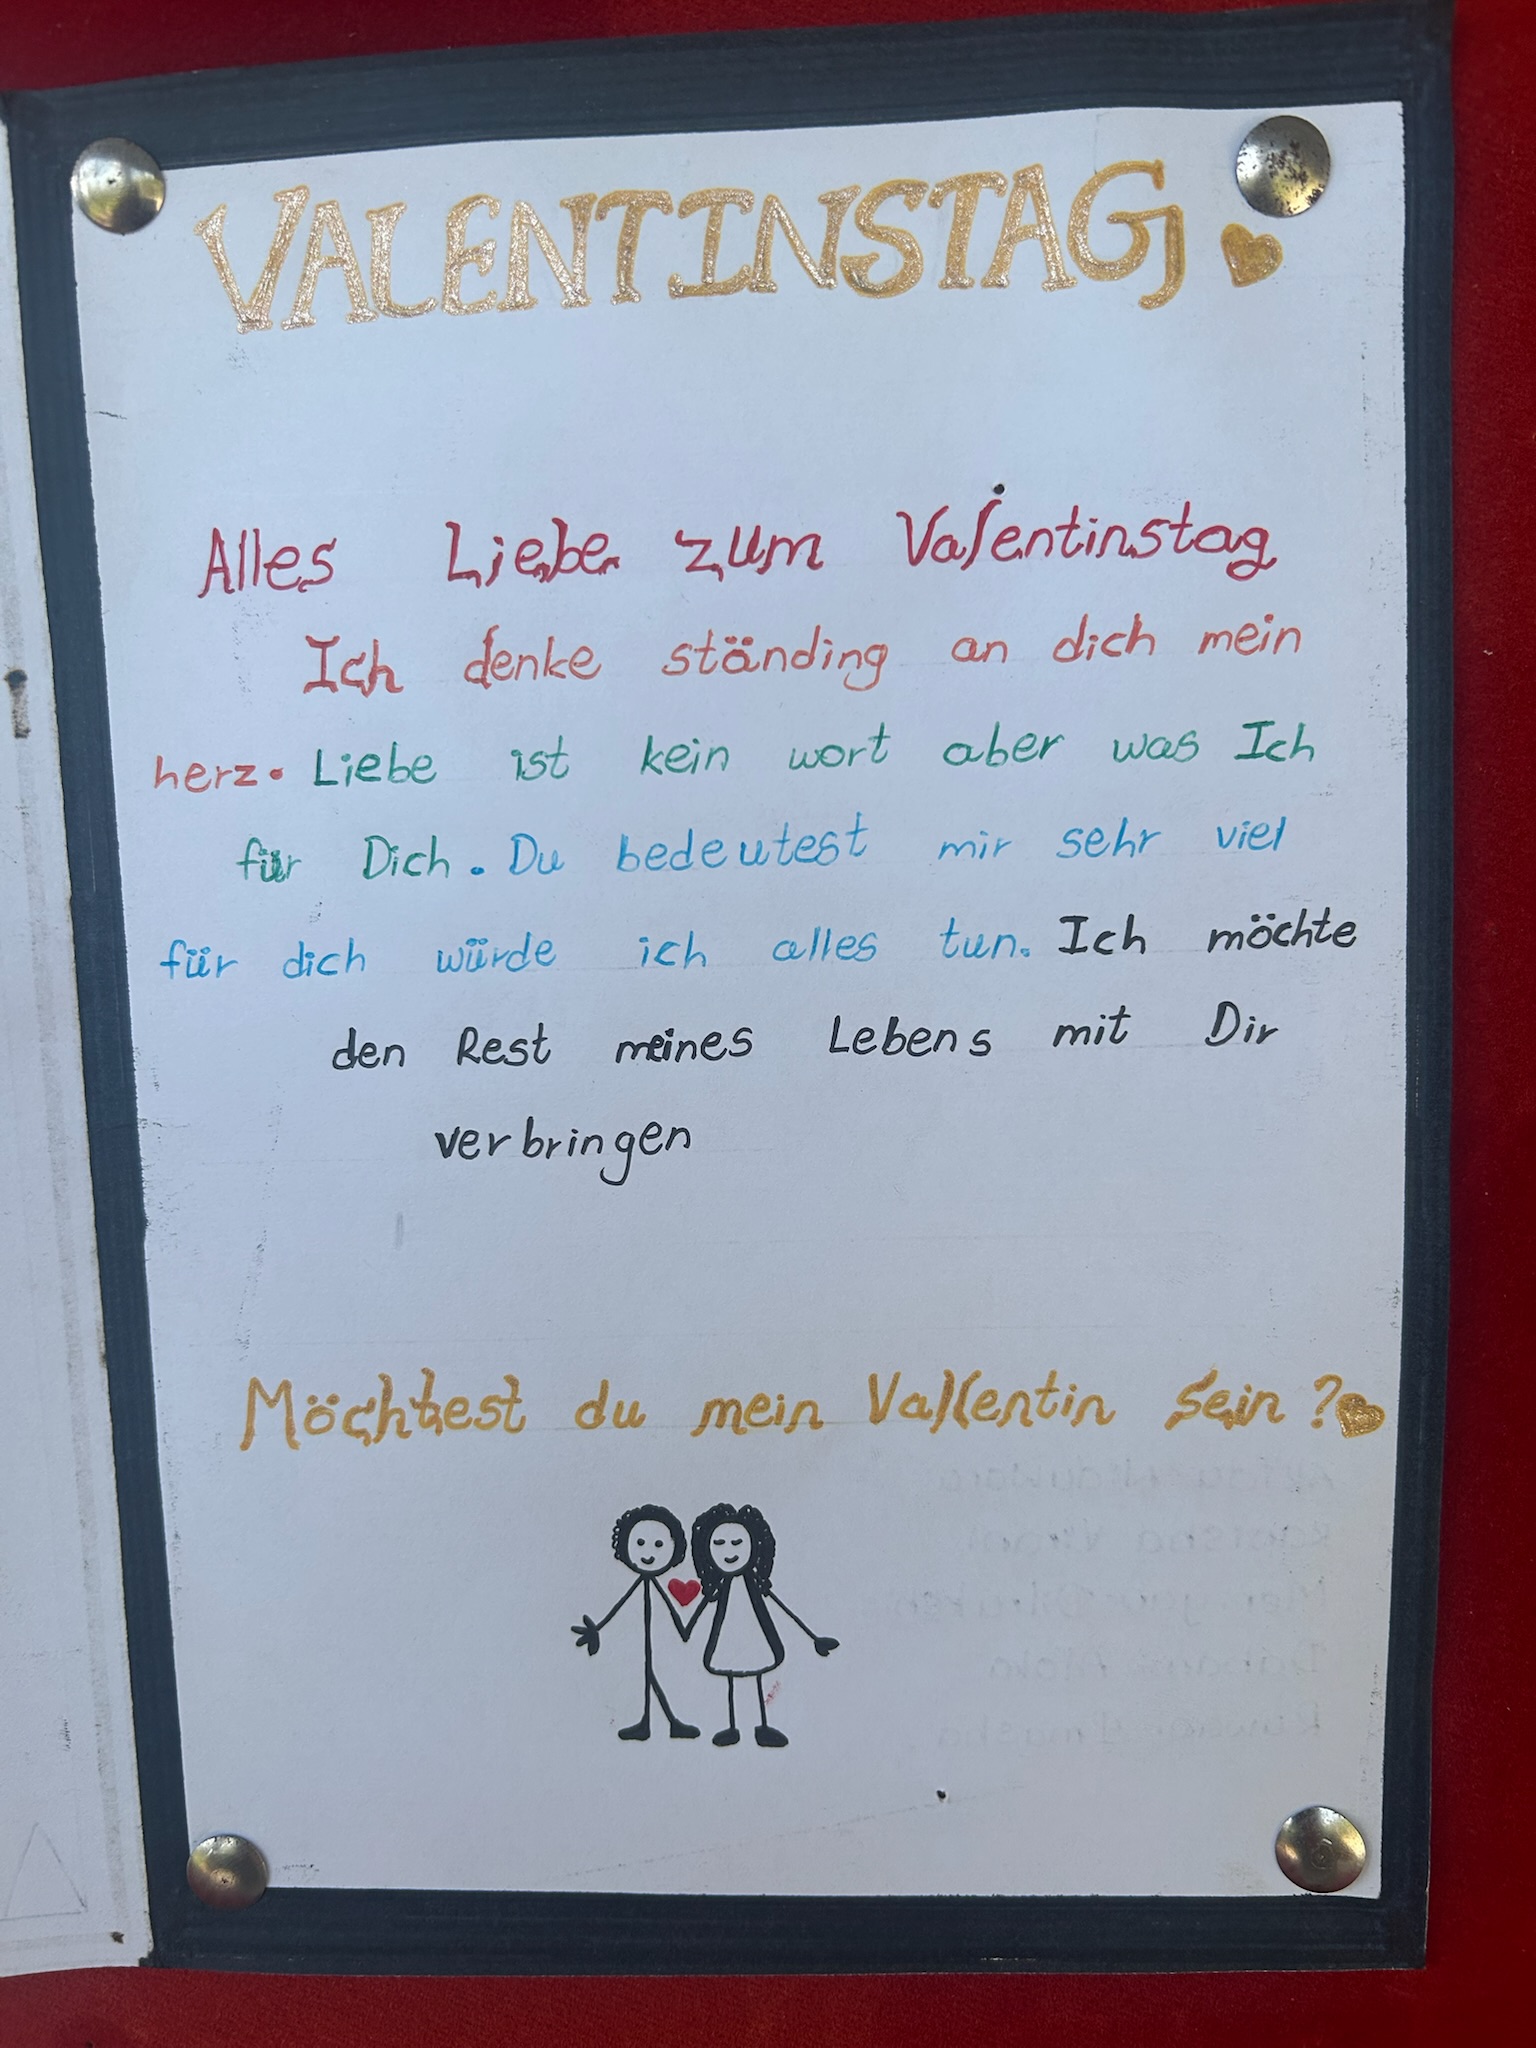 VALENTINSTAG
Alles Liebe zum Valentinstag
Ich denke ständing an dich mein
herz. Liebe ist kein wort aber was Ich
für Dich. Du bedeutest mir sehr viel
für dich würde ich alles tun. Ich möchte
den Rest meines Lebens mit Dir
verbringen
Möchtest du mein Vallentin sein ?